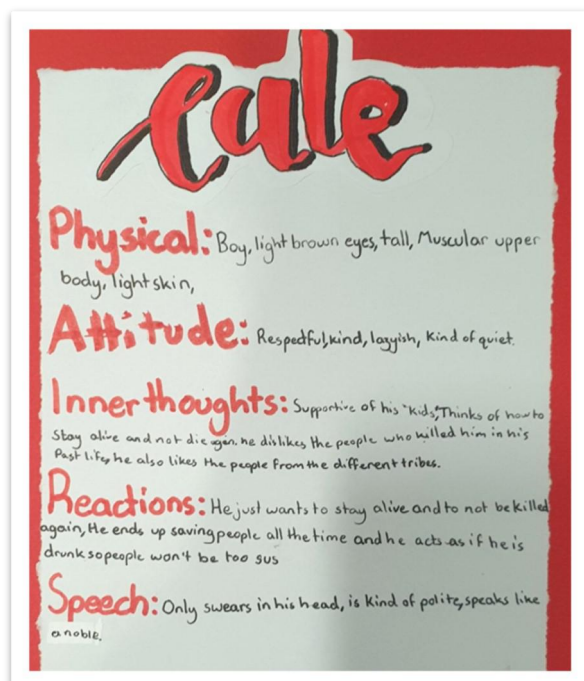 Cale
Physical: Boy, light brown eyes, tall, Muscular upper
body, light skin,
Attitude: Respectful, kind, lazyish, Kind of quiet.
Inner thoughts: Supportive of his "Kids", Thinks of how to
Stay alive and not die agen. he dislikes the people who killed him in his
Past life, he also likes the people from the different tribes.
Reactions: He just wants to stay alive and to not be killed
again, He ends up saving people all the time and he acts as if he is
drunk so people won't be too sus
Speech: Only swears in his head, is Kind of polite, speaks like
a noble.